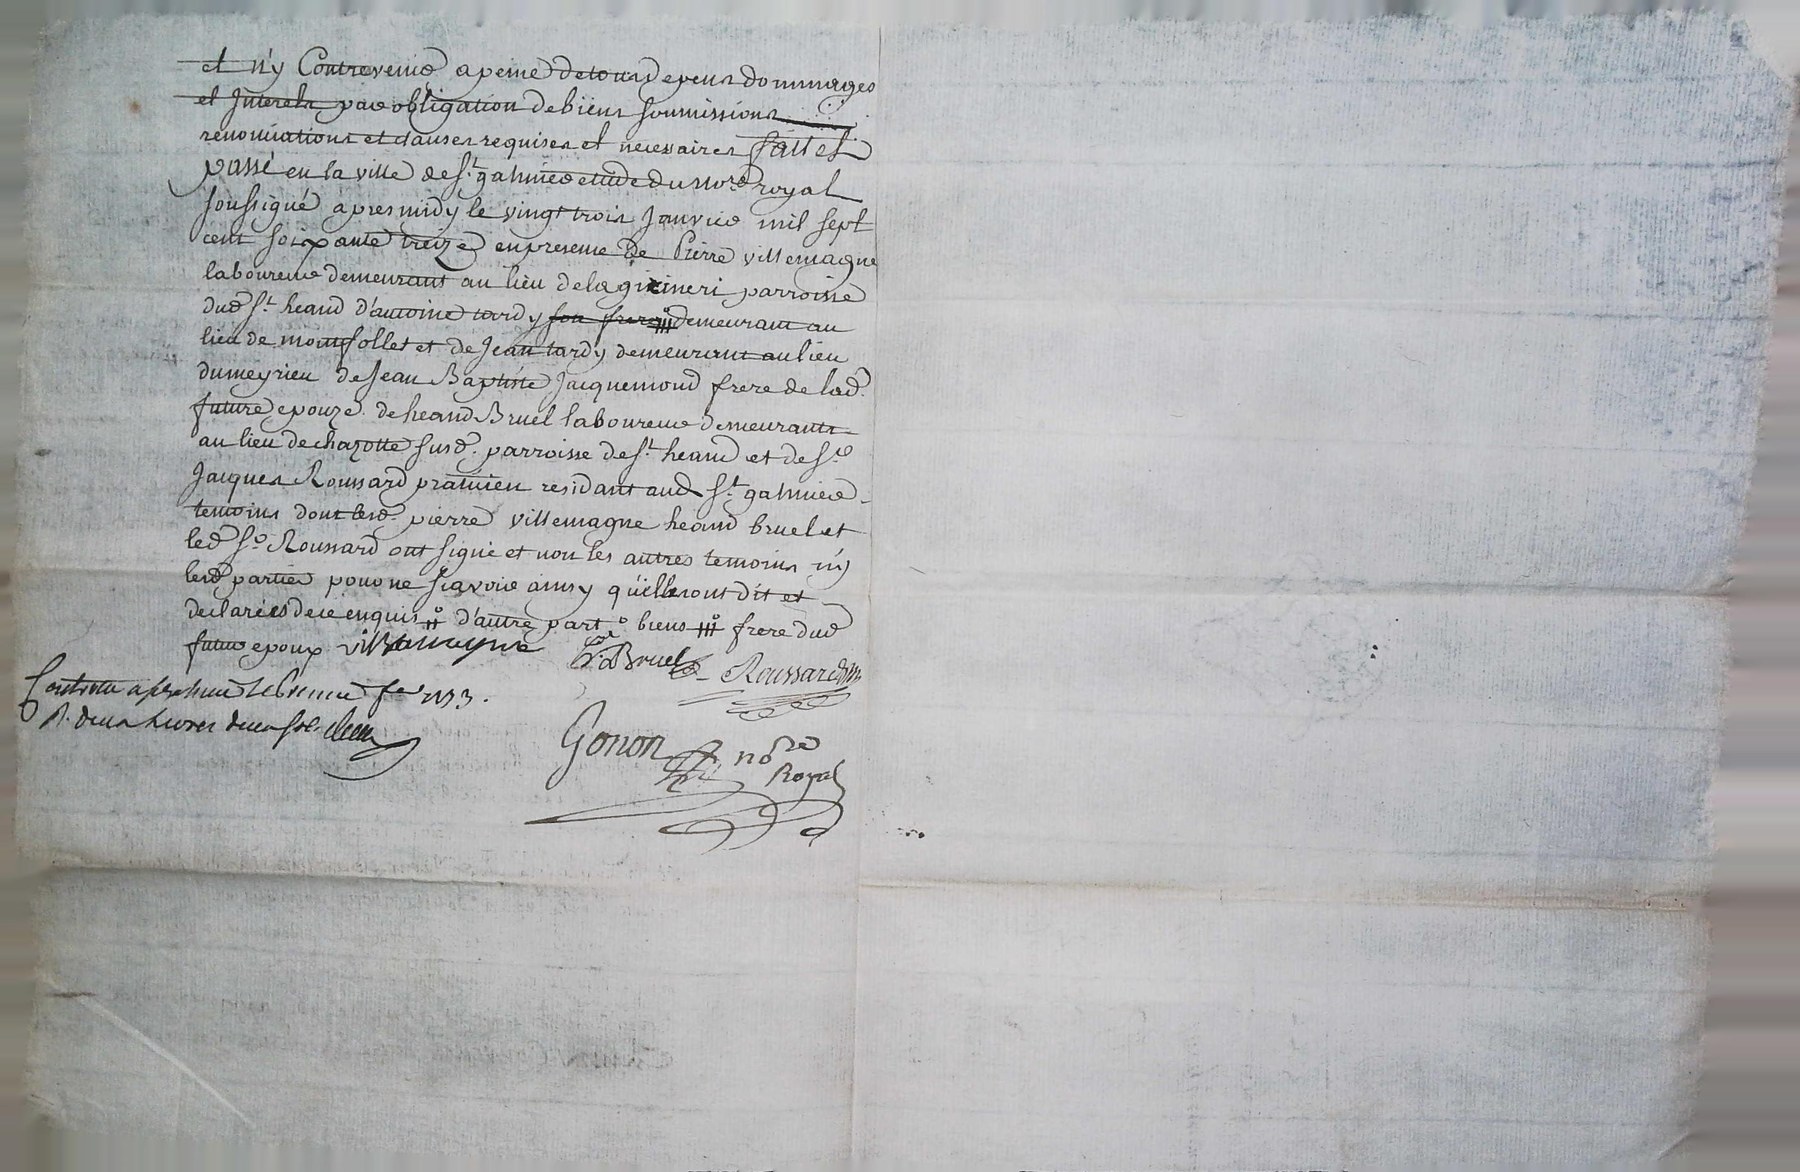 et n'y Contrevenir a peine de tous depens dommages
et Interets par obligation de biens soumissions
renonciations et clauses requises et necessaires fait et
passé en la ville de St. galmier etude du no.re royal
soussigné apres midy le vingt trois Janvier mil sept
cent soixante treize en presence de Pierre villemagne
laboureur demeurant au lieu de la parroisse
dud St. heand d'antoine tardy son frere demeurant au
lieu de montfollet et de Jean tardy demeurant au lieu
du meyrieu de Jean Baptiste Jacquemond frere de lad.
future epouze. de heand Bruel laboureur demeurants
au lieu de chazotte susd. parroisse de St. heand et de Sr.
Jacques Roussard praticien residant aud St. galmier
temoins dont lesd. pierre villemagne heand bruel et
led Sr. Roussard ont signé et non les autres temoins ny
lesd parties pour ne scavoir ainsy qu'elles ont dit et
declarées de ce enquis d'autre part biens frere dud
futur epoux villemagne
Bruel Roussard
Controllé a le fer 1773.
R. deux livres
Gonon no.re
Royal